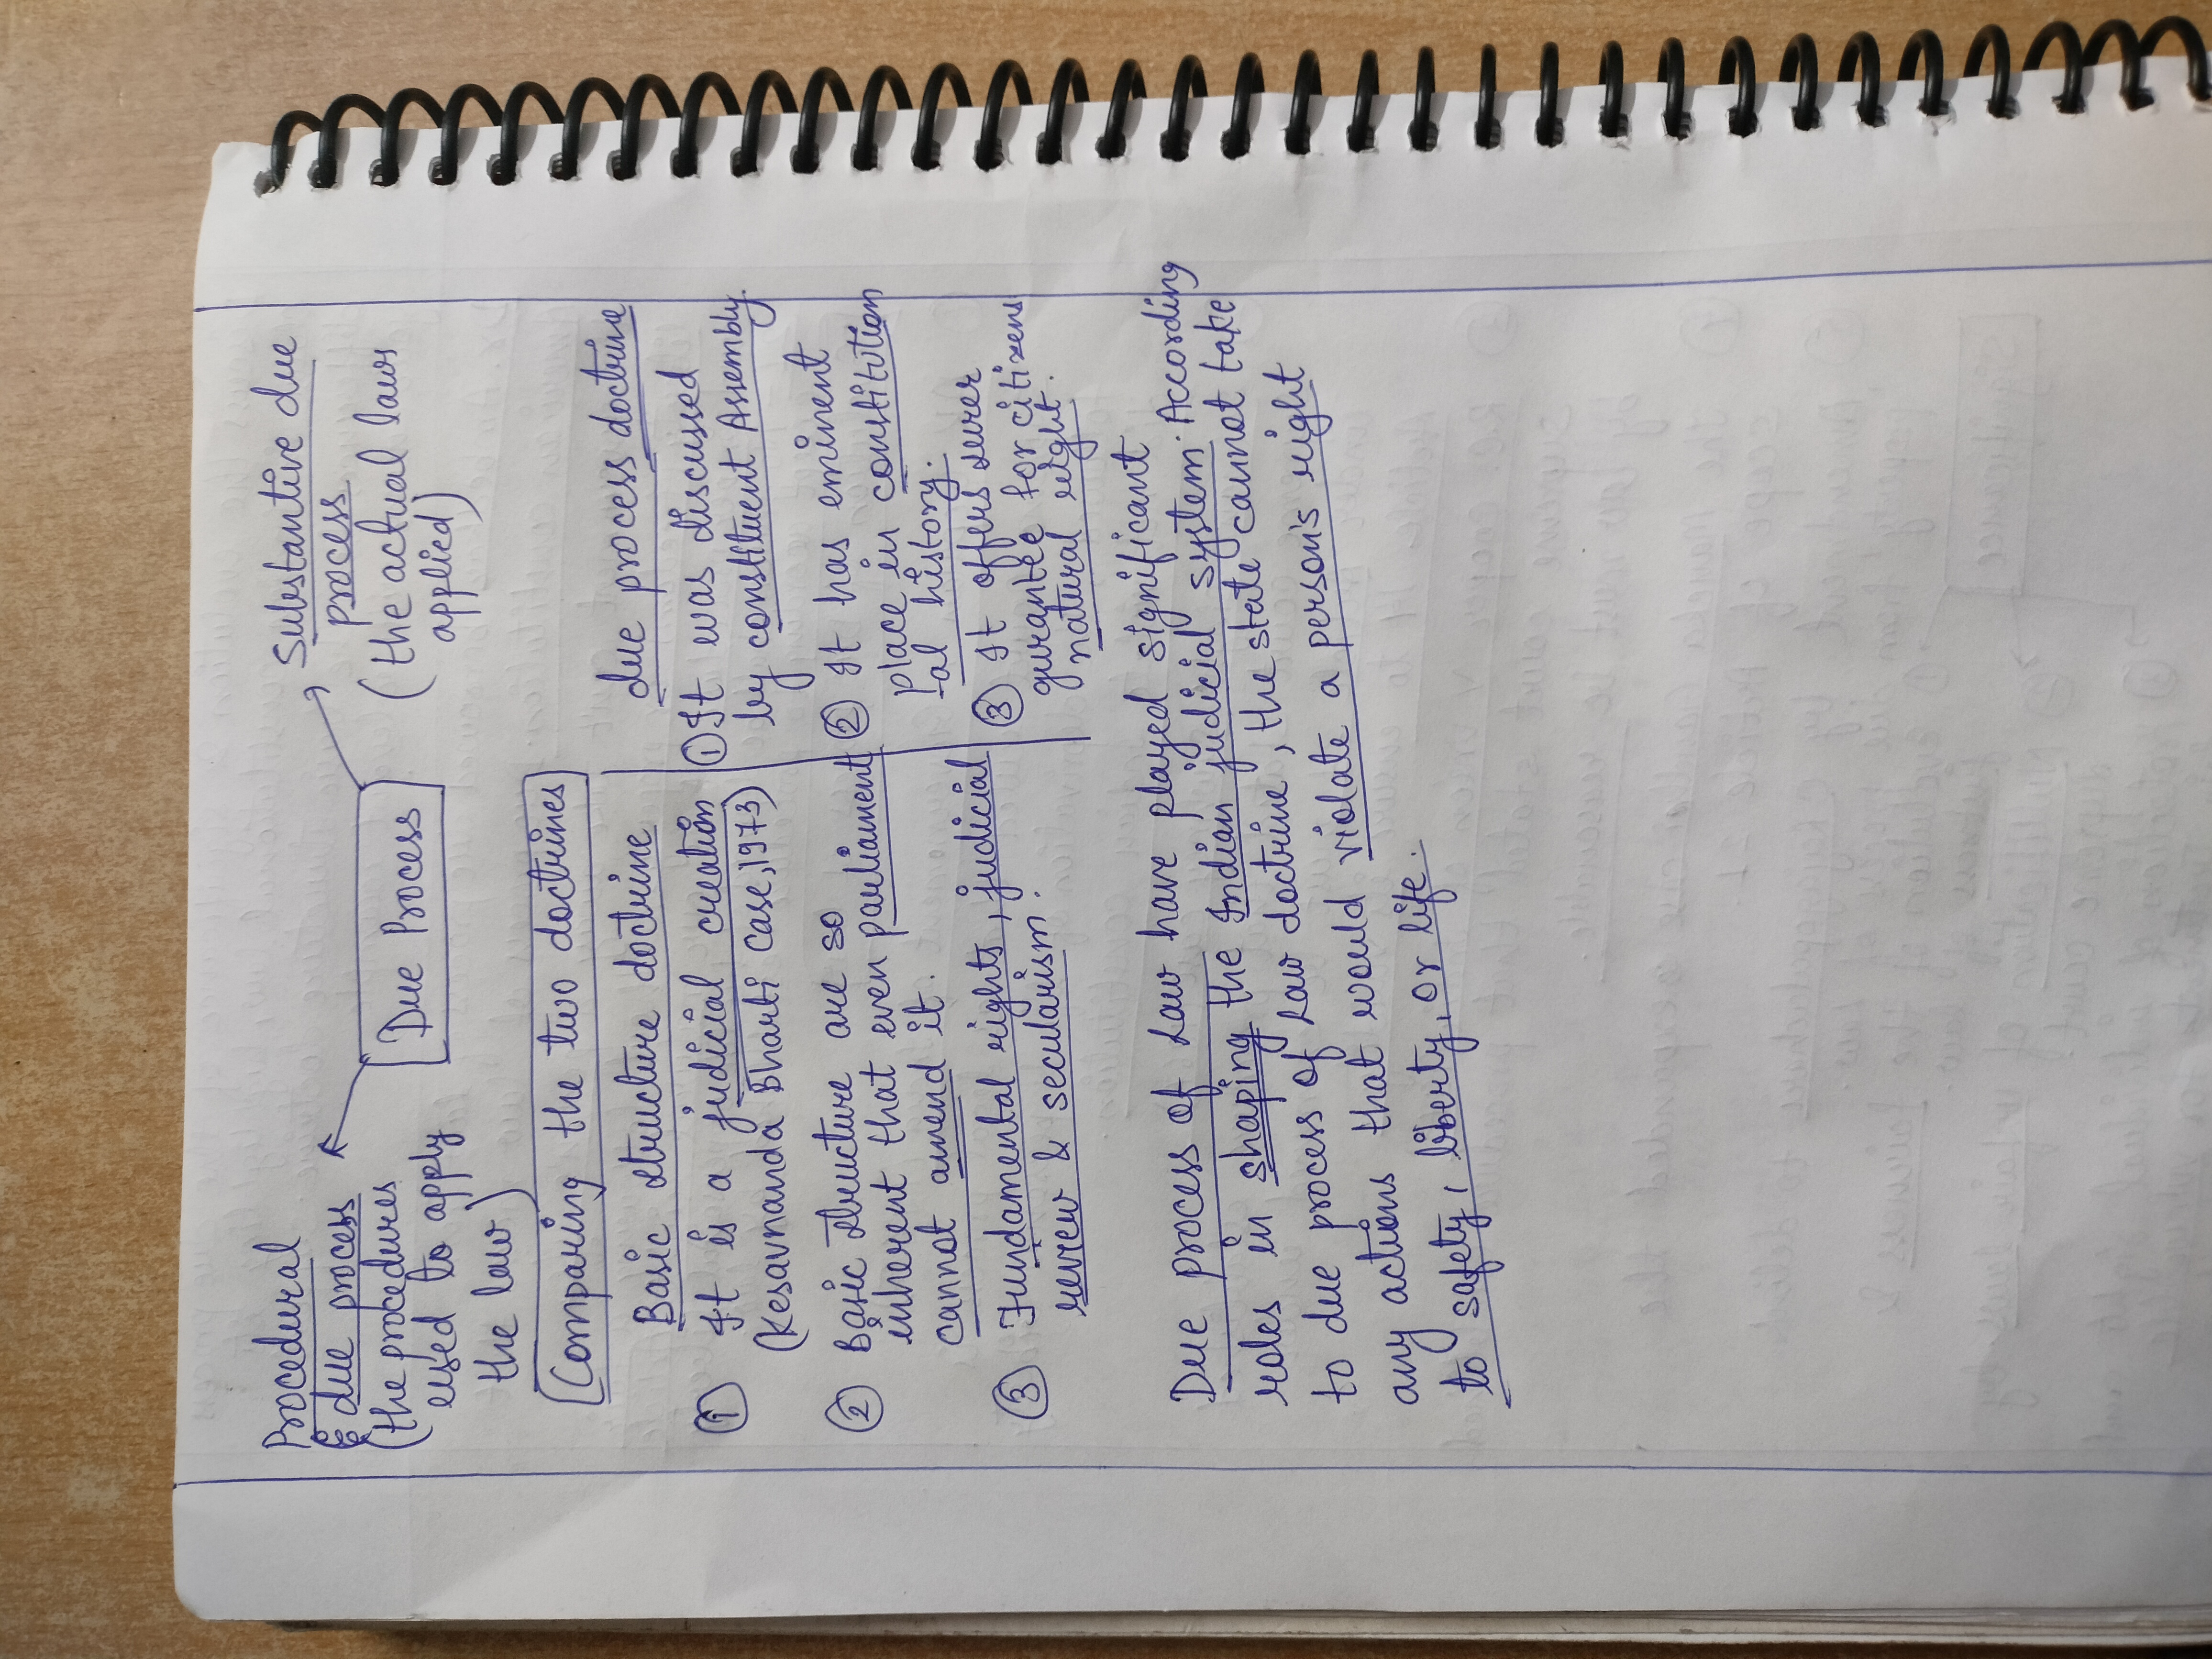 Procedural
due process
(the procedures
used to apply
the law)
Due Process
Substantive due
process
(the actual laws
applied)
Comparing the two doctrines
Basic structure doctrine
① It is a judicial creation
(Kesavnanda Bharti case, 1973)
② Basic structure are so
inherent that even parliament
cannot amend it.
③ Fundamental rights, judicial
review & secularism.
due process doctrine
① It was discussed
by constituent Assembly.
② It has eminent
Place in constitution
-al history.
③ It offers surer
gurantee for citizens
natural right.
Due process of Law have played significant
roles in shaping the Indian judicial system. According
to due process of Law doctrine, the state cannot take
any actions that would violate a person's right
to safety, liberty, or life.